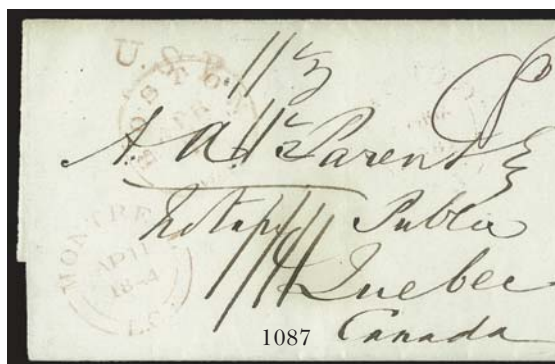 U.S.P.
BOSTON
APR
11½
A. A. Parent Esq
Notary Public
Quebec
Canada
MONTREAL
AP 11
1844
L.C.
1087